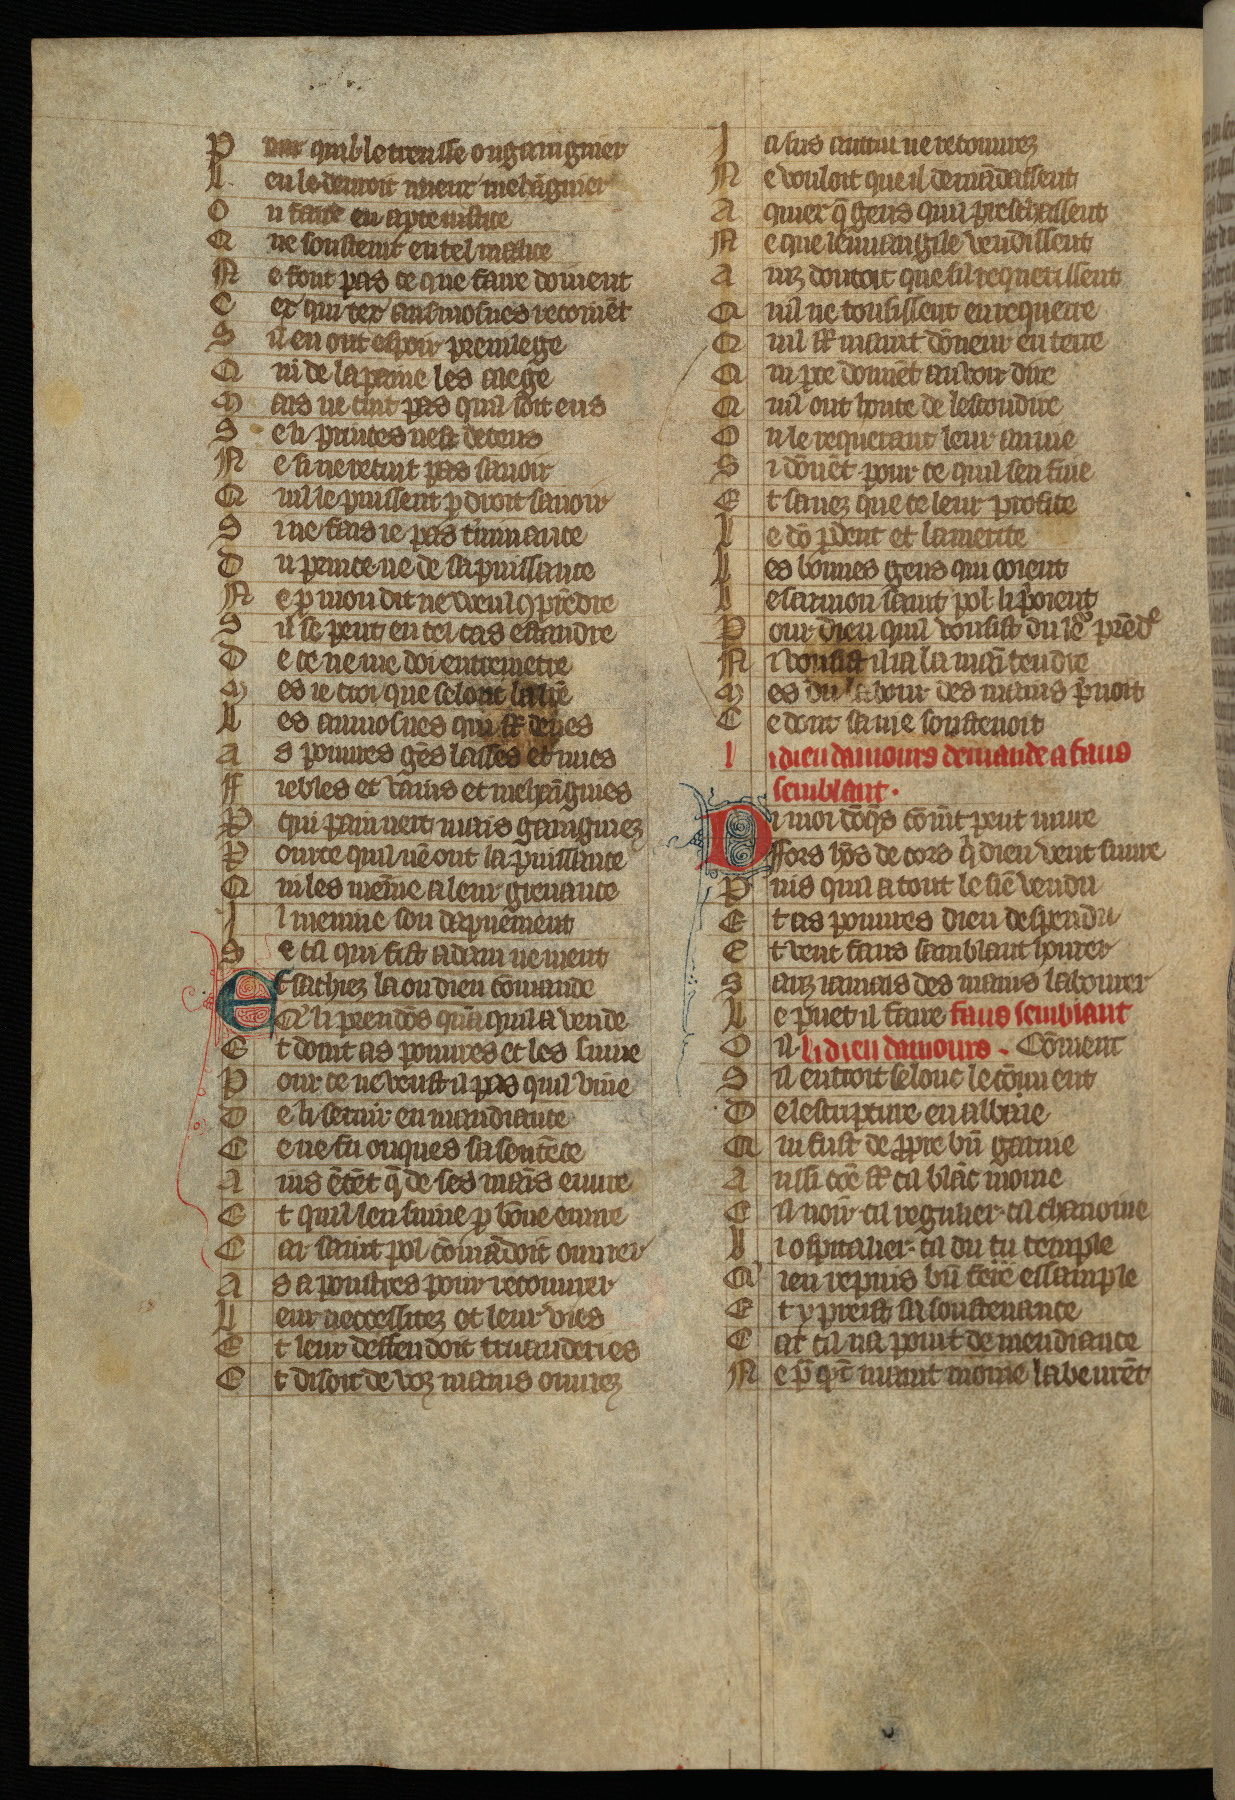 P qui ble treusse ou gaingnier
L en le deuroit mieux mehaignier
O u faire en aperte iustice
Q ue soustenir en tel malice
N e font pas ce que faire doiuent
C ex qui tex aumosnes recoiuẽt
S il en ont espoir preuilege
Q ui de la paine les aliege
M ais ne cuit pas quil soit ens
S e li princes nest deceus
N e si ne recuit pas sauoir
Q uil le puissent p droit sauoir
S i ne fais ie pas t'minance
D u prince ne de sa puissance
N e p mon dit ne vueil 9prẽdre
S il se peut en tel cas estandre
D e ce ne me doi entremetre
M es ie croi que selonc la lr̃e
L es aumosnes qui st̃ deues
A s poures gẽs lasses et nues
F iebles et vains et mehaĩgnies
P qui pain nert mais gaingniez
P our ce quil nẽ ont la puissance
Q ui les meñie a leur greuance
I l meniue son dapnement
S e cil qui fist adam ne ment
Et sachiez la ou dieu cõmande
Q li preudõs quãquil a vende
E t doint as poures et les suiue
P our ce ne veust il pas quil viue
D e li seruir en mandiance
C e ne fu onques sa sentẽce
A ins ẽtẽt q̃ de ses mains euure
E t quil len suiue p bõne euure
C ar saint pol cõmãdoit ouurer
A s apoustres pour recouurer
L eur neccessitez et leur vies
E t leur deffendoit truanderies
E t disoit de voz mains ouurez
I a sus autrui ne recouurez
N e vouloit que il demãdassent
A quier q̃ gens quil preschassent
N e que leuuangile vendissent
A inz doutoit que sil requeissent
Q uil ne tousissent en requerre
Q uil st̃ maint dõneur en terre
Q ui pre donnẽt au voir dire
Q uil ont honte de lescondire
O u le requerant leur anuie
S i dõnẽt pour ce quil sen fuie
E t sauez que ce leur proffite
L e dõ pdent et la merite
L es bonnes gens qui ooient
L e sarmon saint pol li poient
P our dieu quil vousist du leᵒ prẽdᵉ
N i vousist il ia la mai tendre
M es du labour des mains prenoit
C e dont sa uie soustenoit
l i dieu damours demande a faus
semblant.
D i moi dõq̃s cõmẽt peut uiure
ffors hõs de cors q̃ dieu veut suiure
P uis quil a tout le siẽ vendu
E t as poures dieu despendu
E t veut sans semblant hourer
S anz iamais des mains labourer
L e puet il faire faus semblant
O il. li dieu damours. Cõment
S il entroit selonc le cõmment
D e lescripture en abbaie
Q ui fust de ppre biẽ garnie
A ussi cõe st̃ cil blãc moine
C il noir. cil regulier. cil chanoine
L i ospitalier. cil du tu temple
Q ien repuis biẽ feire essample
E t y preist sa soustenance
C ar cil na point de mendiance
N e pq̃t maint moine labeurẽt